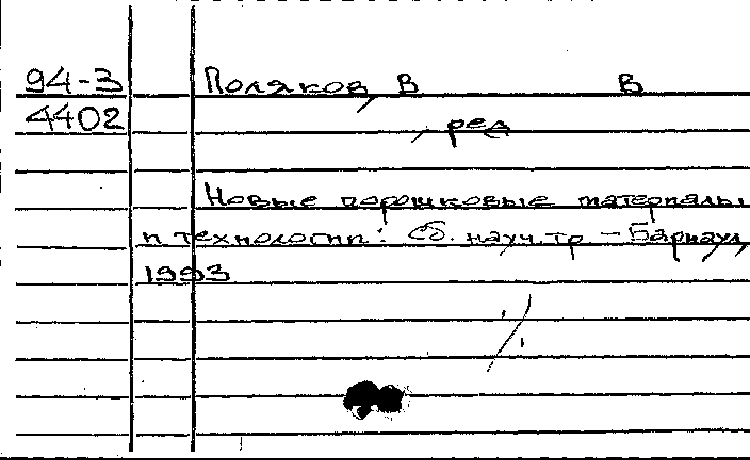 94-3 Поляков, В В
4402 , ред
Новые порошковые материалы
и технологии: Сб. науч. тр – Барнаул,
1993